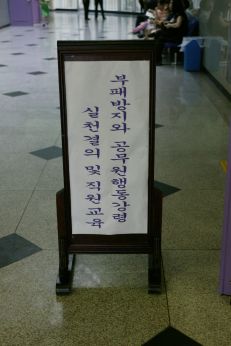 부패방지와 공무원행동강령
실천결의 및 직원교육